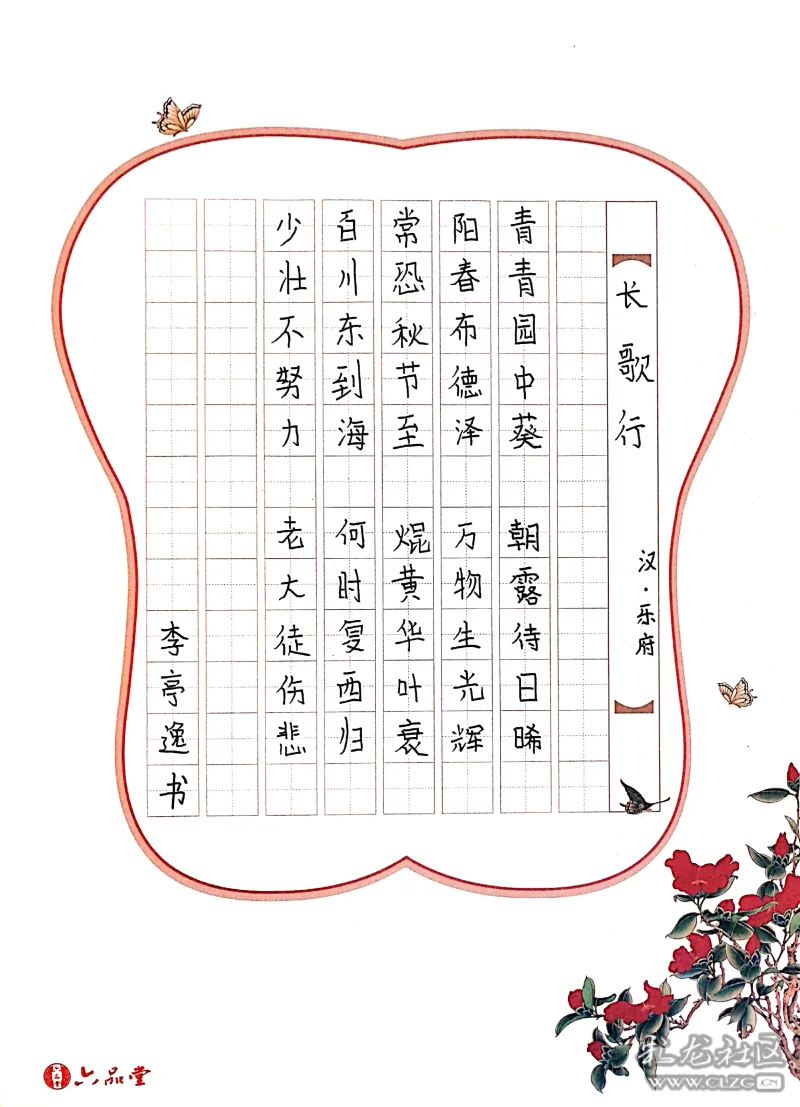 长歌行
汉·乐府
青青园中葵 朝露待日晞
阳春布德泽 万物生光辉
常恐秋节至 焜黄华叶衰
百川东到海 何时复西归
少壮不努力 老大徒伤悲
李亭逸书
六品堂
化龙社区
WWW.CLZG.CN